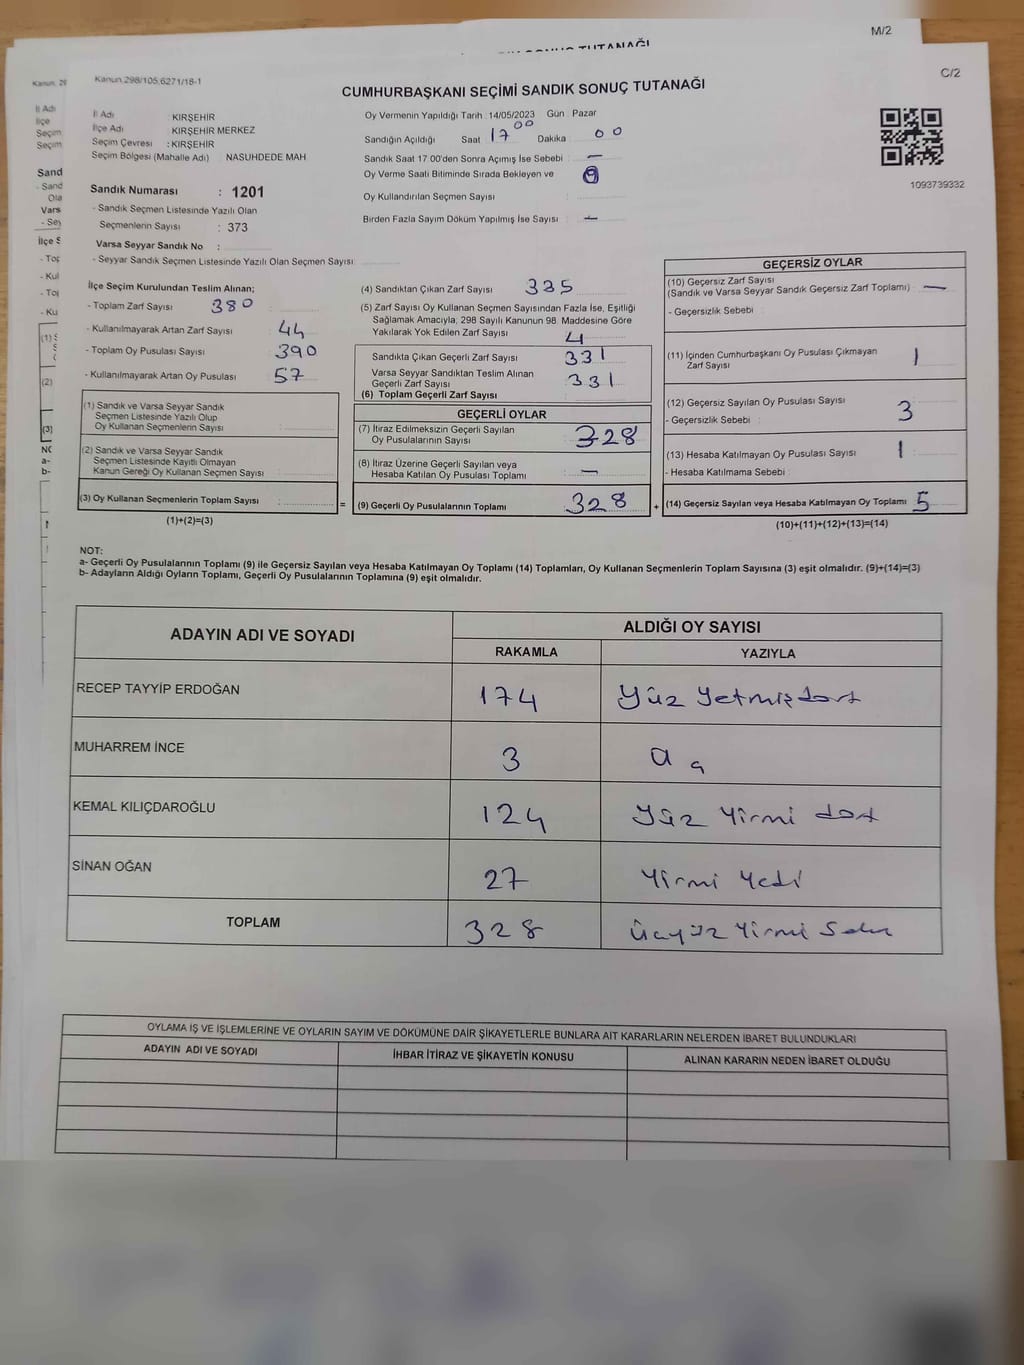 M/2
Kanun 298/105,6271/18-1
C/2
CUMHURBAŞKANI SEÇİMİ SANDIK SONUÇ TUTANAĞI
İl Adı : KIRŞEHİR
İlçe Adı : KIRŞEHİR MERKEZ
Seçim Çevresi : KIRŞEHİR
Seçim Bölgesi (Mahalle Adı) : NASUHDEDE MAH
Sandık Numarası : 1201
- Sandık Seçmen Listesinde Yazılı Olan
Seçmenlerin Sayısı : 373
Varsa Seyyar Sandık No :
- Seyyar Sandık Seçmen Listesinde Yazılı Olan Seçmen Sayısı
Oy Vermenin Yapıldığı Tarih : 14/05/2023 Gün : Pazar
Sandığın Açıldığı Saat 17 00 Dakika 00
Sandık Saat 17.00'den Sonra Açımış İse Sebebi : -
Oy Verme Saati Bitiminde Sırada Bekleyen ve
Oy Kullandırılan Seçmen Sayısı :
Birden Fazla Sayım Döküm Yapılmış İse Sayısı : -
1093739332
İlçe Seçim Kurulundan Teslim Alınan;
- Toplam Zarf Sayısı : 380
- Kullanılmayarak Artan Zarf Sayısı : 44
- Toplam Oy Pusulası Sayısı : 390
- Kullanılmayarak Artan Oy Pusulası : 57
(1) Sandık ve Varsa Seyyar Sandık
Seçmen Listesinde Yazılı Olup
Oy Kullanan Seçmenlerin Sayısı :
(2) Sandık ve Varsa Seyyar Sandık
Seçmen Listesinde Kayıtlı Olmayan
Kanun Gereği Oy Kullanan Seçmen Sayısı :
(3) Oy Kullanan Seçmenlerin Toplam Sayısı :
(1)+(2)=(3)
(4) Sandıktan Çıkan Zarf Sayısı : 335
(5) Zarf Sayısı Oy Kullanan Seçmen Sayısından Fazla İse, Eşitliği
Sağlamak Amacıyla, 298 Sayılı Kanunun 98. Maddesine Göre
Yakılarak Yok Edilen Zarf Sayısı 4
Sandıkta Çıkan Geçerli Zarf Sayısı : 331
Varsa Seyyar Sandıktan Teslim Alınan
Geçerli Zarf Sayısı : 331
(6) Toplam Geçerli Zarf Sayısı :
GEÇERLİ OYLAR
(7) İtiraz Edilmeksizin Geçerli Sayılan
Oy Pusulalarının Sayısı : 328
(8) İtiraz Üzerine Geçerli Sayılan veya
Hesaba Katılan Oy Pusulası Toplamı : -
= (9) Geçerli Oy Pusulalarının Toplamı 328 +
GEÇERSİZ OYLAR
(10) Geçersiz Zarf Sayısı
(Sandık ve Varsa Seyyar Sandık Geçersiz Zarf Toplamı) : -
- Geçersizlik Sebebi :
(11) İçinden Cumhurbaşkanı Oy Pusulası Çıkmayan
Zarf Sayısı : 1
(12) Geçersiz Sayılan Oy Pusulası Sayısı : 3
- Geçersizlik Sebebi :
(13) Hesaba Katılmayan Oy Pusulası Sayısı : 1
- Hesaba Katılmama Sebebi :
(14) Geçersiz Sayılan veya Hesaba Katılmayan Oy Toplamı : 5
(10)+(11)+(12)+(13)=(14)
NOT:
a- Geçerli Oy Pusulalarının Toplamı (9) ile Geçersiz Sayılan veya Hesaba Katılmayan Oy Toplamı (14) Toplamları, Oy Kullanan Seçmenlerin Toplam Sayısına (3) eşit olmalıdır. (9)+(14)=(3)
b- Adayların Aldığı Oyların Toplamı, Geçerli Oy Pusulalarının Toplamına (9) eşit olmalıdır.
ADAYIN ADI VE SOYADI ALDIĞI OY SAYISI
RAKAMLA YAZIYLA
RECEP TAYYİP ERDOĞAN 174 Yüz Yetmiş dört
MUHARREM İNCE 3 Üç
KEMAL KILIÇDAROĞLU 124 Yüz Yirmi dört
SİNAN OĞAN 27 Yirmi Yedi
TOPLAM 328 Üçyüz Yirmi Sekiz
OYLAMA İŞ VE İŞLEMLERİNE VE OYLARIN SAYIM VE DÖKÜMÜNE DAİR ŞİKAYETLERLE BUNLARA AİT KARARLARIN NELERDEN İBARET BULUNDUKLARI
ADAYIN ADI VE SOYADI İHBAR İTİRAZ VE ŞİKAYETİN KONUSU ALINAN KARARIN NEDEN İBARET OLDUĞU